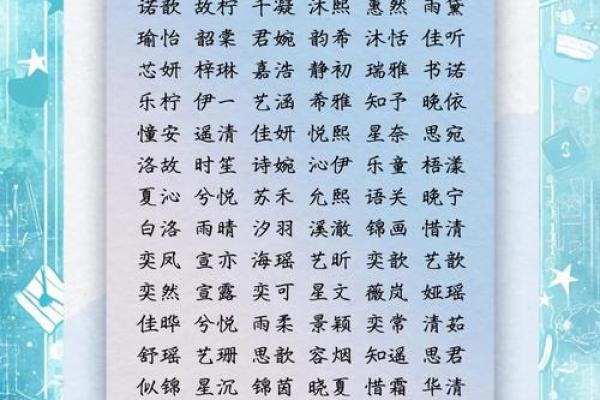 诺歌 故柠 千凝 沐熙 惠然 雨黛
瑜怡 韶棠 君婉 韵希 沐恬 佳听
芯妍 梓琳 嘉浩 静初 瑞雅 书诺
乐柠 伊一 艺涵 希雅 知予 晚依
憧安 遥清 佳妍 悦熙 星奈 思宛
洛故 时笙 诗婉 沁伊 乐童 梧漾
夏沁 兮悦 苏禾 允熙 语关 晚宁
白洛 雨晴 汐羽 溪澈 锦画 惜清
奕风 宣亦 海瑶 艺昕 奕歆 艺歆
奕然 宣露 奕可 星文 薇岚 娅瑶
佳晔 兮悦 雨柔 景颖 奕常 清茹
舒瑶 艺珊 思歆 容烟 知遥 思君
似锦 星沉 锦茵 晓夏 惜霜 华清